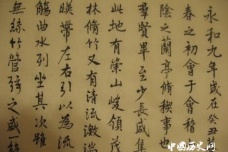 永和九年歲在癸丑
春之初會于會稽
陰之蘭亭脩禊事
羣賢畢至少長咸集
此地有崇山峻領茂
林脩竹又有清流激湍
暎帶左右引以為流
觴曲水列坐其次雖
無絲竹管弦之盛
中国历史网